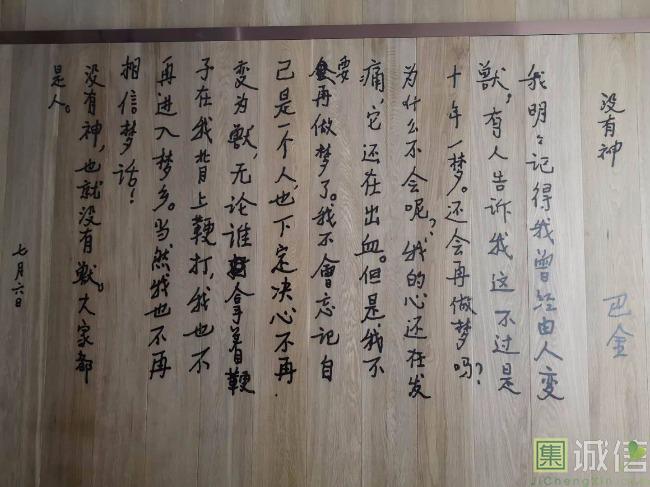 没有神
巴金
我明々记得我曾经由人变
獸，有人告诉我这不过是
十年一梦。还会再做梦吗？
为什么不会呢？我的心还在发
痛，它还在出血。但是我不
要再做梦了。我不會忘记自
己是一个人，也下定决心不再
变为獸，无论谁拿着鞭
子在我背上鞭打，我也不
再进入梦乡。当然我也不再
相信梦话！
没有神，也就没有獸。大家都
是人。
七月六日
集诚信
JiChengXin.com